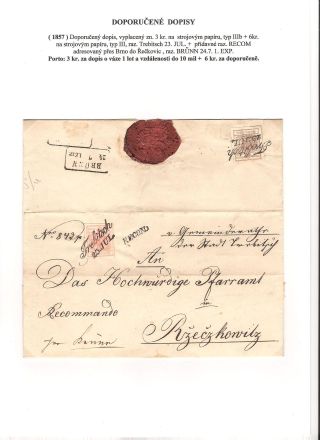 DOPORUČENÉ DOPISY
( 1857 ) Doporučený dopis, vyplacený zn. 3 kr. na strojovým papíru, typ IIIb + 6kr.
na strojovým papíru, typ III, raz. Trebitsch 23. JUL, + přídavné raz. RECOM
adresovaný přes Brno do Řečkovic, raz. BRÜNN 24.7. I. EXP.
Porto: 3 kr. za dopis o váze 1 lot a vzdálenosti do 10 mil + 6 kr. za doporučené.
BRÜNN
24 7
Trebitsch
23 JUL
RECOM
Trebitsch
23 JUL
v. Gemeinderathe
der Stadt Trebitsch
An
Das Hochwürdige Pfarramt
Recommando
Ržeczkowitz
per Brünn